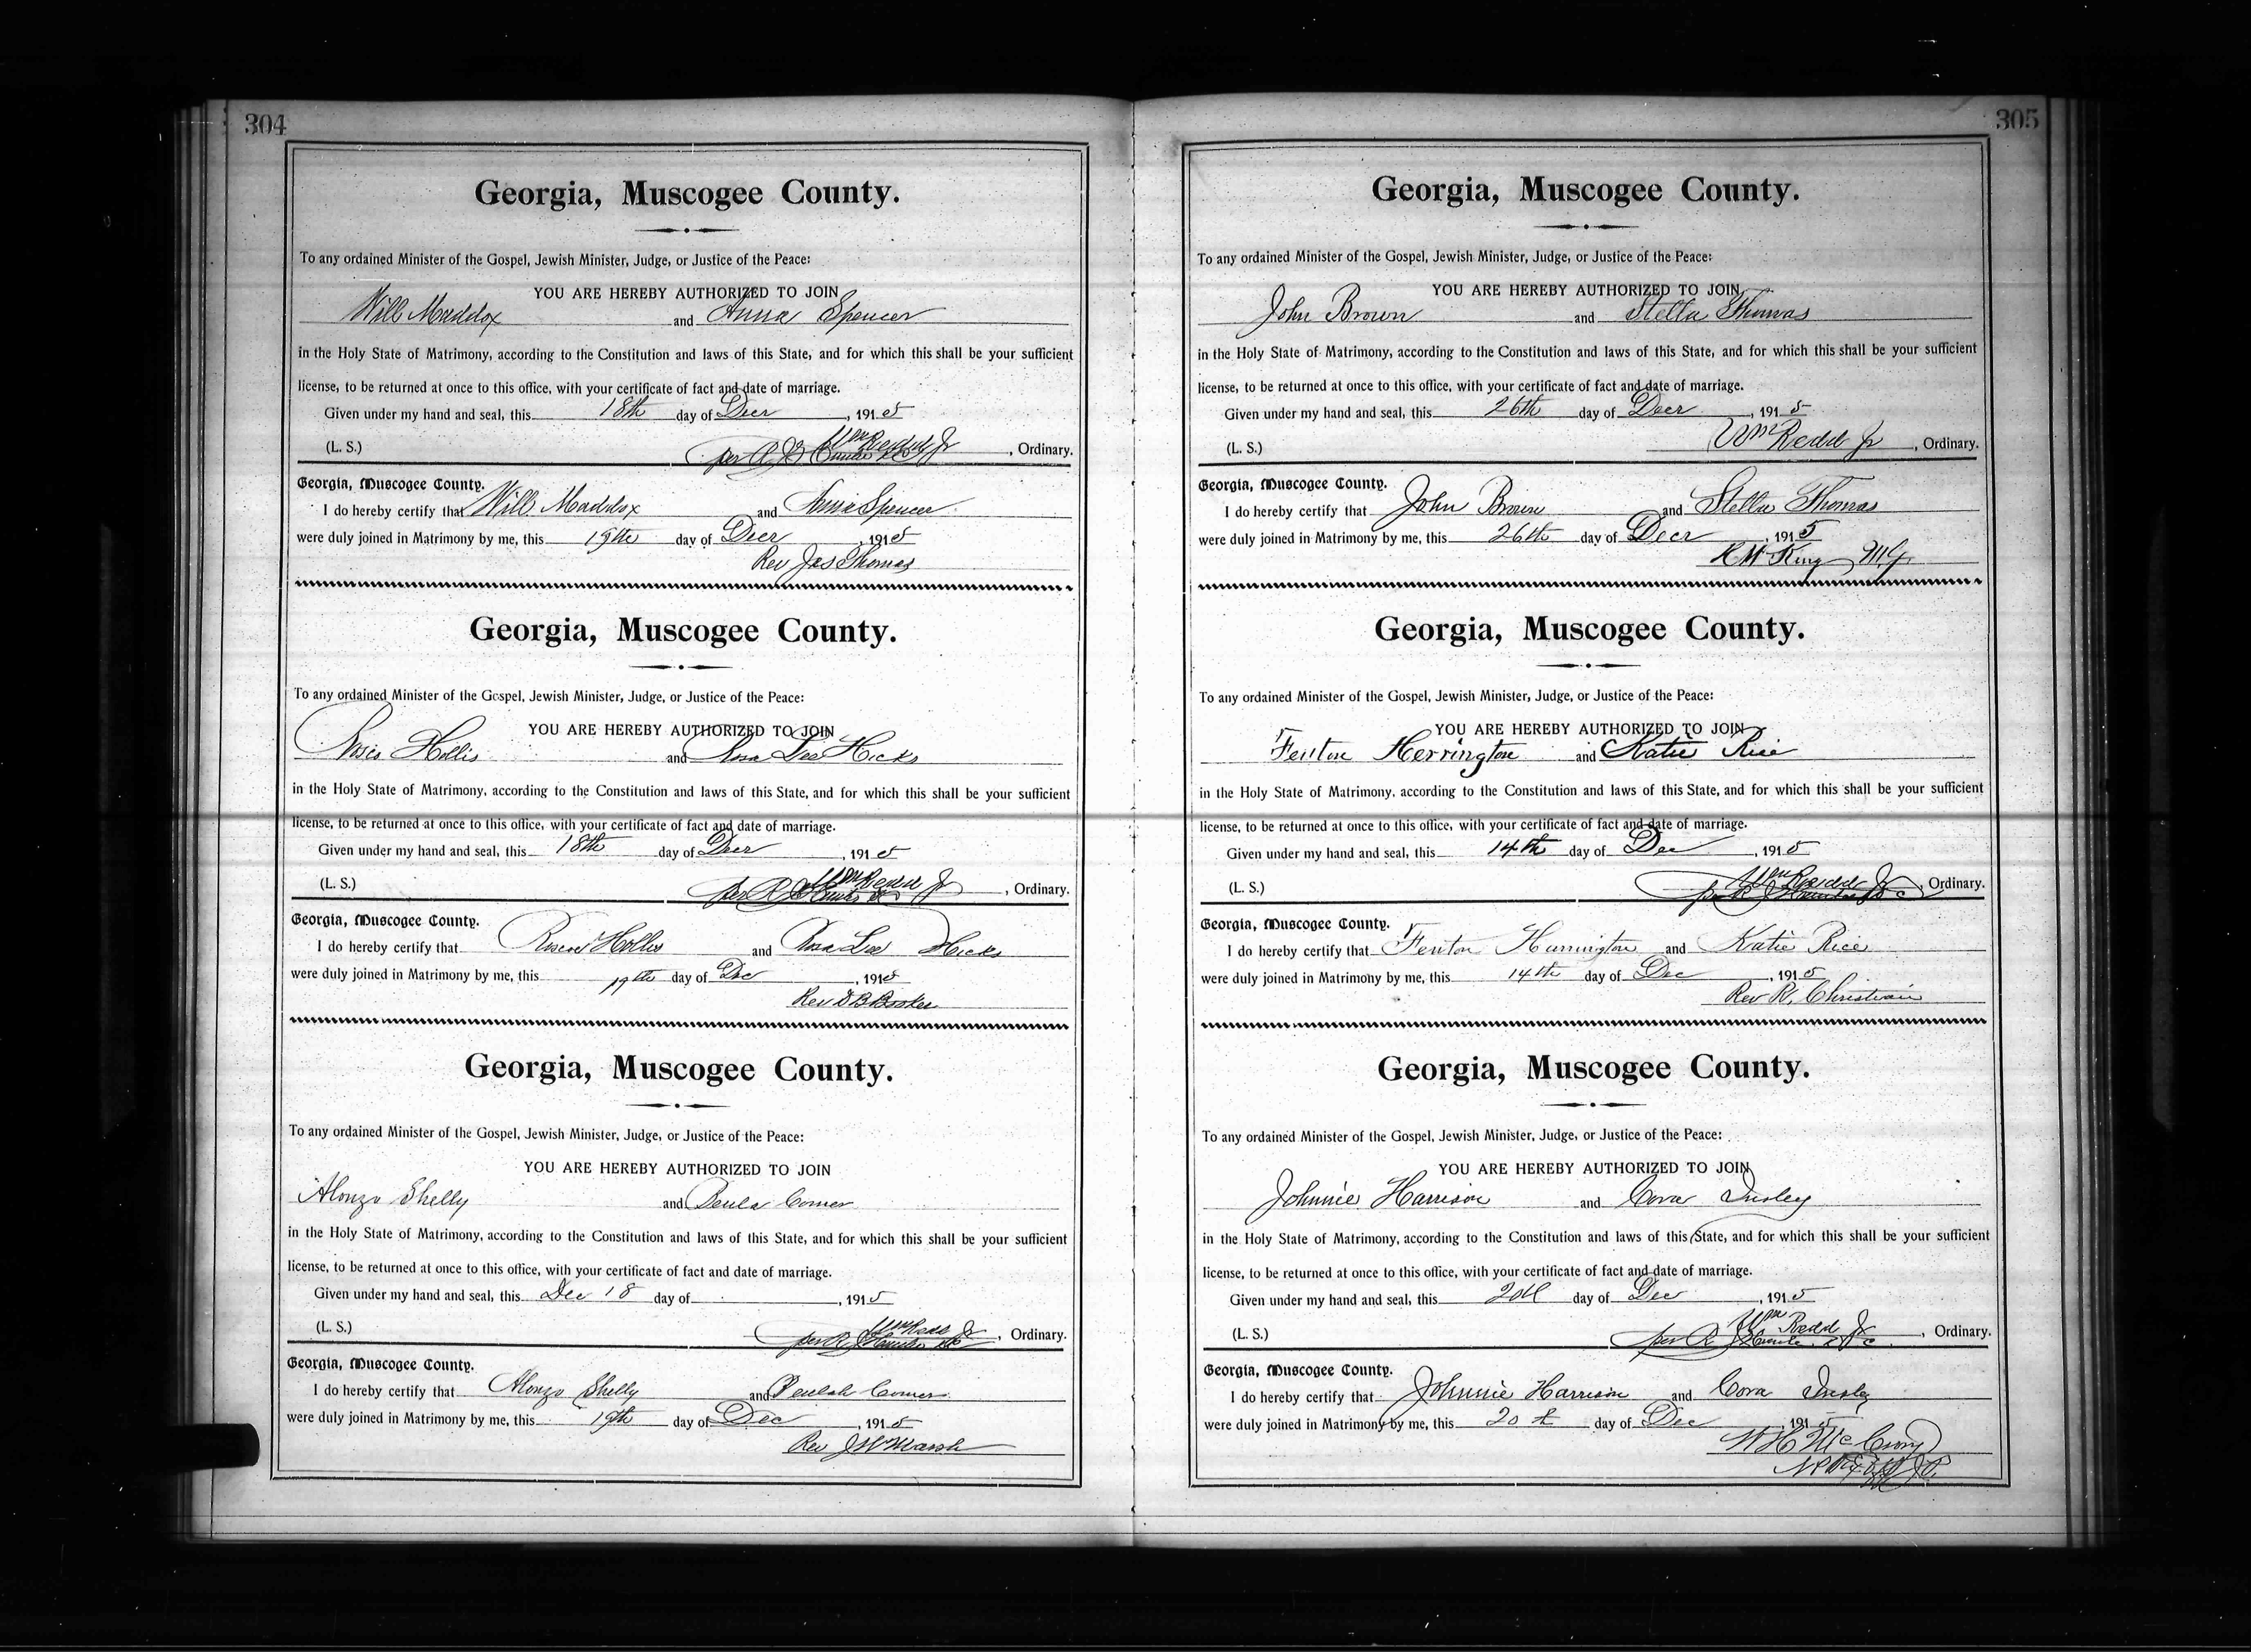 304
Georgia, Muscogee County.
To any ordained Minister of the Gospel, Jewish Minister, Judge, or Justice of the Peace:
YOU ARE HEREBY AUTHORIZED TO JOIN
Will Maddox and Anna Spencer
in the Holy State of Matrimony, according to the Constitution and laws of this State, and for which this shall be your sufficient
license, to be returned at once to this office, with your certificate of fact and date of marriage.
Given under my hand and seal, this 18th day of Decr, 1915
(L. S.) Wm Redd Jr, Ordinary.
per R J
Georgia, Muscogee County.
I do hereby certify that Will Maddox and Annie Spencer
were duly joined in Matrimony by me, this 19th day of Decr, 1915
Rev Jas Thomas
Georgia, Muscogee County.
To any ordained Minister of the Gospel, Jewish Minister, Judge, or Justice of the Peace:
YOU ARE HEREBY AUTHORIZED TO JOIN
Hollis and Rosa Lee Hicks
in the Holy State of Matrimony, according to the Constitution and laws of this State, and for which this shall be your sufficient
license, to be returned at once to this office, with your certificate of fact and date of marriage.
Given under my hand and seal, this 18th day of Decr, 1915
(L. S.) Wm Redd Jr, Ordinary.
per R J
Georgia, Muscogee County.
I do hereby certify that Roscoe Hollis and Rosa Lee Hicks
were duly joined in Matrimony by me, this 19th day of Dec, 1915
Rev D B Booker
Georgia, Muscogee County.
To any ordained Minister of the Gospel, Jewish Minister, Judge, or Justice of the Peace:
YOU ARE HEREBY AUTHORIZED TO JOIN
Alonzo Shelly and Beula Comer
in the Holy State of Matrimony, according to the Constitution and laws of this State, and for which this shall be your sufficient
license, to be returned at once to this office, with your certificate of fact and date of marriage.
Given under my hand and seal, this Dec 18 day of , 1915
(L. S.) Wm Redd Jr, Ordinary.
per R J
Georgia, Muscogee County.
I do hereby certify that Alonzo Shelly and Beulah Comer
were duly joined in Matrimony by me, this 19th day of Dec, 1915
Rev J W Marsh
305
Georgia, Muscogee County.
To any ordained Minister of the Gospel, Jewish Minister, Judge, or Justice of the Peace:
YOU ARE HEREBY AUTHORIZED TO JOIN
John Brown and Stella Thomas
in the Holy State of Matrimony, according to the Constitution and laws of this State, and for which this shall be your sufficient
license, to be returned at once to this office, with your certificate of fact and date of marriage.
Given under my hand and seal, this 26th day of Decr, 1915
(L. S.) Wm Redd Jr, Ordinary.
Georgia, Muscogee County.
I do hereby certify that John Brown and Stella Thomas
were duly joined in Matrimony by me, this 26th day of Decr, 1915
King M.G.
Georgia, Muscogee County.
To any ordained Minister of the Gospel, Jewish Minister, Judge, or Justice of the Peace:
YOU ARE HEREBY AUTHORIZED TO JOIN
Fenton Herrington and Katie Rice
in the Holy State of Matrimony, according to the Constitution and laws of this State, and for which this shall be your sufficient
license, to be returned at once to this office, with your certificate of fact and date of marriage.
Given under my hand and seal, this 14th day of Dec, 1915
(L. S.) Wm Redd Jr, Ordinary.
per R J
Georgia, Muscogee County.
I do hereby certify that Fenton Harrington and Katie Rice
were duly joined in Matrimony by me, this 14th day of Dec, 1915
Rev R. Christian
Georgia, Muscogee County.
To any ordained Minister of the Gospel, Jewish Minister, Judge, or Justice of the Peace:
YOU ARE HEREBY AUTHORIZED TO JOIN
Johnnie Harrison and Cora Insley
in the Holy State of Matrimony, according to the Constitution and laws of this State, and for which this shall be your sufficient
license, to be returned at once to this office, with your certificate of fact and date of marriage.
Given under my hand and seal, this day of Dec, 1915
(L. S.) Wm Redd Jr, Ordinary.
per R J
Georgia, Muscogee County.
I do hereby certify that Johnnie Harrison and Cora Insley
were duly joined in Matrimony by me, this 20th day of Dec, 1915
W H McCrory